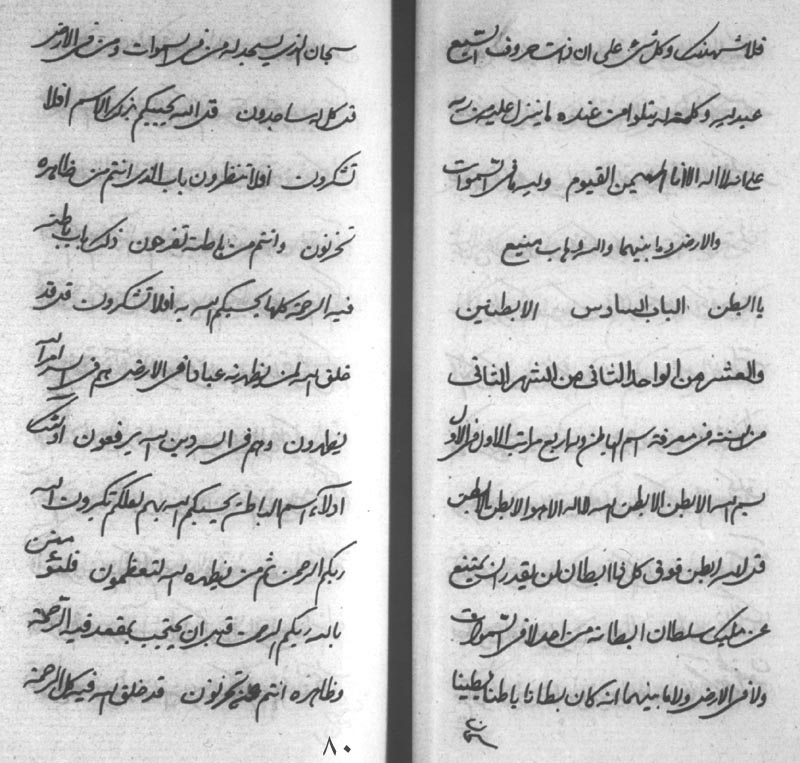 فلاشهدنك وكل شئ على ان ذات حروف السبع
عبدك وكلمة قد يتلوا من عنده ما ينزل عليه من ربه
على انه لا اله الا انا المهيمن القيوم ولله ما فى السموات
والارض وما بينهما والله وهاب منيع
يا ابطن الباب السادس الابطنين
والعشر من الواحد الثانى من الشهر الثانى
من السنة فى معرفة اسم الباطن وله اربع مراتب الاول فى الاول
بسم الله الابطن الابطن الله لا اله الا هو الابطن الابطن
قل الله ابطن فوق كل ذا ابطان لن يقدر ان يمتنع
عن مليك سلطان ابطانه من احد لا فى السموات
ولا فى الارض ولا ما بينهما انه كان بطانا باطنا بطينا
سبحان الذى يسجد له من فى السموات ومن فى الارض
قل كل له ساجدون قل الله يحبيكم بذلك الاسم افلا
تشكرون افلا تنظرون باب الذى انتم من ظاهره
تحزنون وانتم من باطنه تفرحون ذلك باب باطنه
فيه الرحمة كلها يحسبكم الله به افلا تشكرون قل قد
خلق الله لمن يظهره عبادا فى الارض هم فى الله امر الله
يظهرون وهم فى السر دين الله يرفعون اولئك
ادلاء اسم الباطن يحسبكم الله بهم لعلكم تكبرون الله
ربكم الرحمن ثم من يظهره الله لتعظمون فلتؤمنن
بالله ربكم الرحمن قبل ان يحتجب بمقعد فيه الرحمة
وظاهره انتم عنه تحزنون قد خلق الله فيه كل الرحمة
٨٠